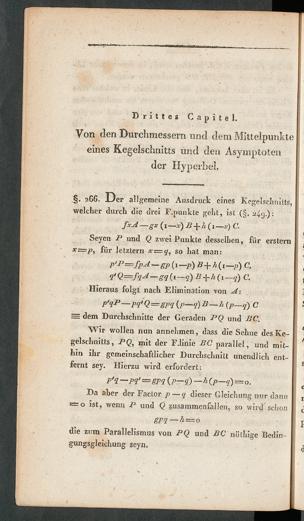 Drittes Capitel.
Von den Durchmessern und dem Mittelpunkte
eines Kegelschnitts und den Asymptoten
der Hyperbel.
§. 266. Der allgemeine Ausdruck eines Kegelschnitts,
welcher durch die drei F.punkte geht, ist (§. 249.):
fxA—gx(1—x)B+h(1—x)C.
Seyen P und Q zwei Punkte desselben, für erstern
x=p, für letztern x=q, so hat man:
p'P=fpA—gp(1—p)B+h(1—p)C,
q'Q=fqA—gq(1—q)B+h(1—q)C.
Hieraus folgt nach Elimination von A:
p'qP—pq'Q=gpq(p—q)B—h(p—q)C
≡ dem Durchschnitte der Geraden PQ und BC.
Wir wollen nun annehmen, dass die Sehne des Ke-
gelschnitts, PQ, mit der F.linie BC parallel, und mit-
hin ihr gemeinschaftlicher Durchschnitt unendlich ent-
fernt sey. Hierzu wird erfordert:
p'q—pq'=gpq(p—q)—h(p—q)=0.
Da aber der Factor p—q dieser Gleichung nur dann
=0 ist, wenn P und Q zusammenfallen, so wird schon
gpq—h=0
die zum Parallelismus von PQ und BC nöthige Bedin-
gungsgleichung seyn.